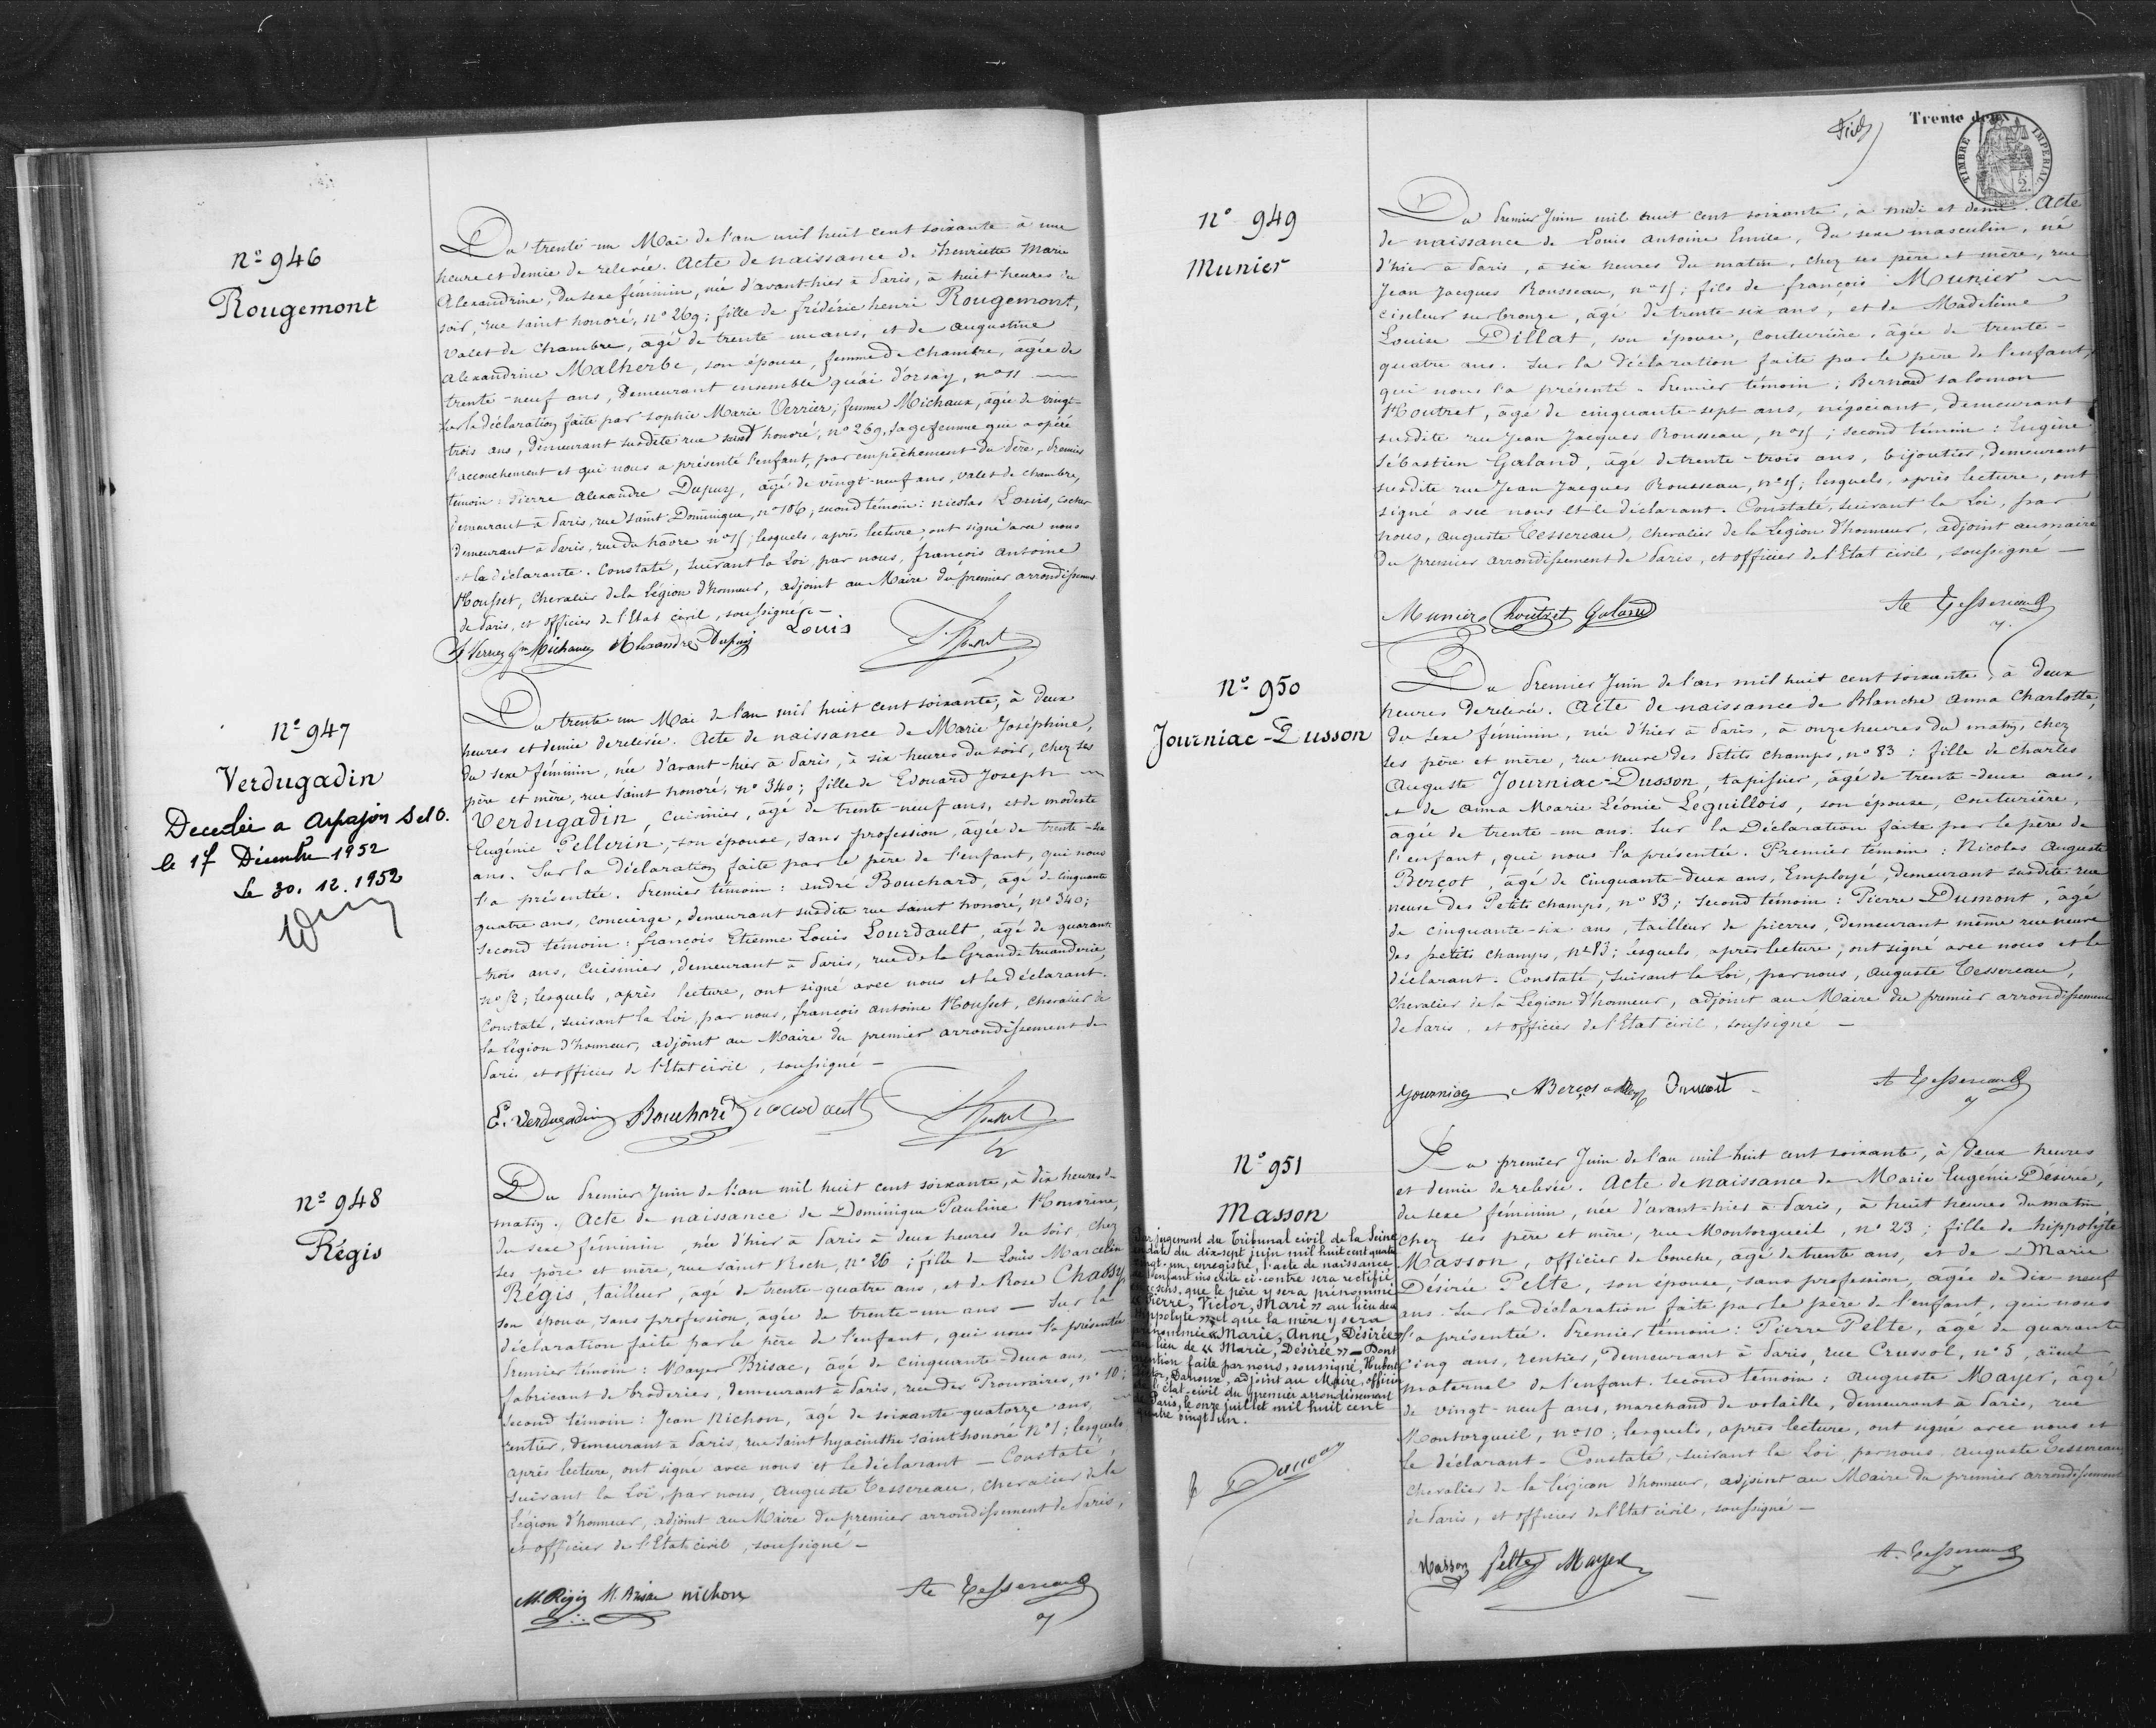 nº 946
Rougemont
Du trente un Mai de l'an mil huit cent soixante à une
heure et demie de relevée. Acte de naissance de henriette Marie
Alexandrine, du sexe féminin, née d'avant-hier à Paris, à huit heures du
soir, rue saint honoré, nº 269; fille de frédéric henri Rougemont,
valet de chambre, âgé de trente-un ans, et de augustine
alexandrine Malherbe, son épouse, femme de chambre, âgée de
trente-neuf ans, demeurant ensemble quai d'orsay, nº 11 —
sur la déclaration faite par sophie Marie Verrier, femme Michaux, âgée de vingt-
trois ans, demeurant susdite rue saint honoré, nº 269, sage femme qui a opéré
l'accouchement et qui nous a présenté l'enfant, par empêchement du Père, Premier
témoin: Pierre alexandre Dupuy, âgé de vingt-neuf ans, valet de chambre,
demeurant à Paris, rue Saint Dominique, nº 106; second témoin: nicolas Louis, cocher
demeurant à Paris, rue du havre nº 15; lesquels, après lecture, ont signé avec nous
et la déclarante. Constaté, suivant la Loi, par nous, françois antoine
Housset, chevalier de la Légion d'honneur, adjoint au Maire du premier arrondissement
de Paris, et officier de l'Etat civil, soussigné —
S Verrier fm Michaux Alexandre Dupuy Louis
nº 947
Verdugadin
Decedée a Arpajon S et O.
le 17 Décembre 1952
Le 30.12.1952
Du trente un Mai de l'an mil huit cent soixante, à deux
heures et demie de relevée. Acte de naissance de Marie Joséphine,
du sexe féminin, née d'avant-hier à Paris, à six heures du soir, chez ses
père et mère, rue saint honoré, nº 340; fille de Edouard Joseph —
Verdugadin, cuisinier, âgé de trente-neuf ans, et de modeste
Eugénie Pellerin, son épouse, sans profession, âgée de trente-six
ans. Sur la déclaration faite par le père de l'enfant, qui nous
l'a présentée. Premier témoin: andré Bouchard, âgé de cinquante
quatre ans, concierge, demeurant susdite rue saint honoré, nº 340;
second témoin: françois Etienne Louis Lourdault, âgé de quarante
-trois ans, cuisinier, demeurant à Paris, rue de la Grande truanderie,
nº 52; lesquels, après lecture, ont signé avec nous et le déclarant.
Constaté, suivant la Loi, par nous, françois antoine Housset, chevalier de
la Légion d'honneur, adjoint au Maire du premier arrondissement de
Paris et officier de l'Etat civil, soussigné —
E. Verdugadin Bouchard Lourdault
nº 948
Régis
Du Premier Juin de l'an mil huit cent soixante, à dix heures du
matin. Acte de naissance de Dominique Pauline Honorine,
du sexe féminin, née d'hier à Paris à deux heures du soir, chez
ses père et mère, rue saint Roch, nº 26; fille de Louis Marcelin
Régis, tailleur, âgé de trente-quatre ans, et de Rose Chassy
son épouse, sans profession, âgée de trente-un ans — Sur la
déclaration faite par le père de l'enfant, qui nous l'a présentée
Premier témoin: Mayer Brisac, âgé de cinquante-deux ans, —
fabricant de broderies, demeurant à Paris, rue des Prouvaires, nº 10;
second témoin: Jean Nichon, âgé de soixante-quatorze ans, —
rentier, demeurant à Paris, rue saint hyacinthe saint honoré nº 1; lesquels
après lecture, ont signé avec nous et le déclarant — Constaté,
suivant la Loi, par nous, Auguste Tessereau, chevalier de la
Légion d'honneur, adjoint au Maire du premier arrondissement de Paris,
et officier de l'Etat civil, soussigné —
M. Régis M. Brisac nichon A Tessereau
Trente deux
TIMBRE IMPERIAL
nº 949
Munier
Du Premier Juin mil huit cent soixante, à midi et demi. Acte
de naissance de Louis antoine Emile, du sexe masculin, né
d'hier à Paris, à six heures du matin, chez ses père et mère, rue
Jean Jacques Rousseau, nº 15; fils de françois Munier —
ciseleur sur bronze, âgé de trente-six ans, et de Madeleine
Louise Dillat, son épouse, couturière, âgée de trente-
quatre ans. Sur la déclaration faite par le père de l'enfant,
qui nous l'a présenté. Premier témoin: Bernard salomon
Houtret, âgé de cinquante-sept ans, négociant, demeurant
susdite rue Jean Jacques Rousseau, nº 15; second témoin: Eugène
Sébastien Galand, âgé de trente-trois ans, bijoutier, demeurant
susdite rue Jean Jacques Rousseau, nº 15; lesquels, après lecture, ont
signé avec nous et le déclarant. Constaté, suivant la Loi, par
nous, auguste Tessereau, chevalier de la Légion d'honneur, adjoint au maire
du premier arrondissement de Paris, et officier de l'Etat civil, soussigné —
Munier Houtret Galand A Tessereau
nº 950
Journiac-Dusson
Du Premier Juin de l'an mil huit cent soixante, à deux
heures de relevée. Acte de naissance de Blanche anna Charlotte,
du sexe féminin, née d'hier à Paris, à onze heures du matin, chez
ses père et mère, rue neuve des Petits champs, nº 83; fille de charles
Auguste Journiac-Dusson, tapissier, âgé de trente-deux ans,
et de anna Marie Léonie Leguillois, son épouse, couturière,
âgée de trente-un ans. Sur la Déclaration faite par le père de
l'enfant, qui nous l'a présentée. Premier témoin: Nicolas auguste
Berçot, âgé de cinquante-deux ans, Employé, demeurant susdite rue
neuve des Petits champs, nº 83; second témoin: Pierre Dumont, âgé
de cinquante-six ans, tailleur de pierres, demeurant même rue neuve
des petits champs, nº 83; lesquels, après lecture, ont signé avec nous et le
déclarant. Constaté, suivant la Loi, par nous, auguste Tessereau,
chevalier de la Légion d'honneur, adjoint au Maire du premier arrondissement
de Paris, et officier de l'Etat civil, soussigné —
Journiac Berços Dumont A Tessereau
nº 951
Masson
Par jugement du tribunal civil de la Seine
en date du dix-sept juin mil huit cent quatre
vingt-un, enregistré, l'acte de naissance
de l'enfant inscrite ci-contre sera rectifié
en ce sens, que le père y sera prénommé
« Pierre, Victor, Mari » au lieu de «
hippolyte » et que la mère y sera
prénommée « Marie, Anne, Désirée »
au lieu de « Marie, Désirée » — Dont
mention faite par nous, soussigné, Hubert
Danoux, adjoint au Maire, officier
de l'état-civil du premier arrondissement
de Paris, le onze juillet mil huit cent
quatre vingt un.
Du premier Juin de l'an mil huit cent soixante, à deux heures
et demie de relevée. Acte de naissance de Marie Eugénie Désirée,
du sexe féminin, née d'avant-hier à Paris, à huit heures du matin
chez ses père et mère, rue Montorgueil, nº 23; fille de hippolyte
Masson, officier de bouche, âgé de trente ans, et de Marie
Désirée Pelte, son épouse, sans profession, âgée de dix-neuf
ans. Sur la déclaration faite par le père de l'enfant, qui nous
l'a présentée. Premier témoin: Pierre Pelte, âgé de quarante
cinq ans, rentier, demeurant à Paris, rue Crussol, nº 5, aïeul
maternel de l'enfant. second témoin: auguste Mayer, âgé
de vingt-neuf ans, marchand de volaille, demeurant à Paris, rue
Montorgueil, nº 10; lesquels, après lecture, ont signé avec nous et
le déclarant. Constaté, suivant la Loi, par nous, auguste Tessereau
chevalier de la Légion d'honneur, adjoint au Maire du premier arrondissement
de Paris, et officier de l'Etat civil, soussigné —
Masson Pelte Mayer A. Tessereau